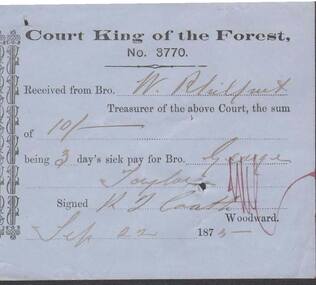 Court King of the Forest,
No. 3770.
Received from Bro. W.
Treasurer of the above Court, the sum
of 10/—
being 3 day's sick pay for Bro. George
Taylor
Signed R
Woodward.
Sep 22 187